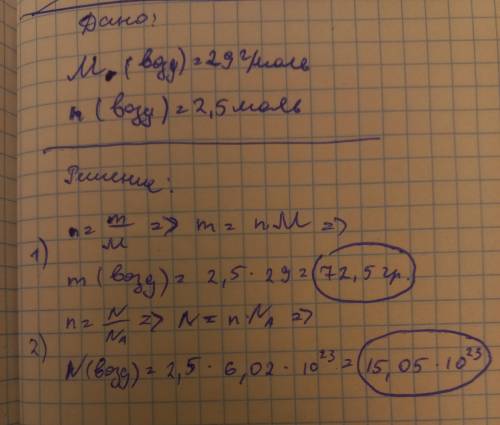 Дано:
M (возд) = 29 г/моль
n (возд) = 2,5 моль
Решение:
1) n = m/M => m = nM =>
m (возд) = 2,5 · 29 = 72,5 гр.
2) n = N/NA => N = n·NA =>
N (возд) = 2,5 · 6,02 · 10²³ = 15,05 · 10²³